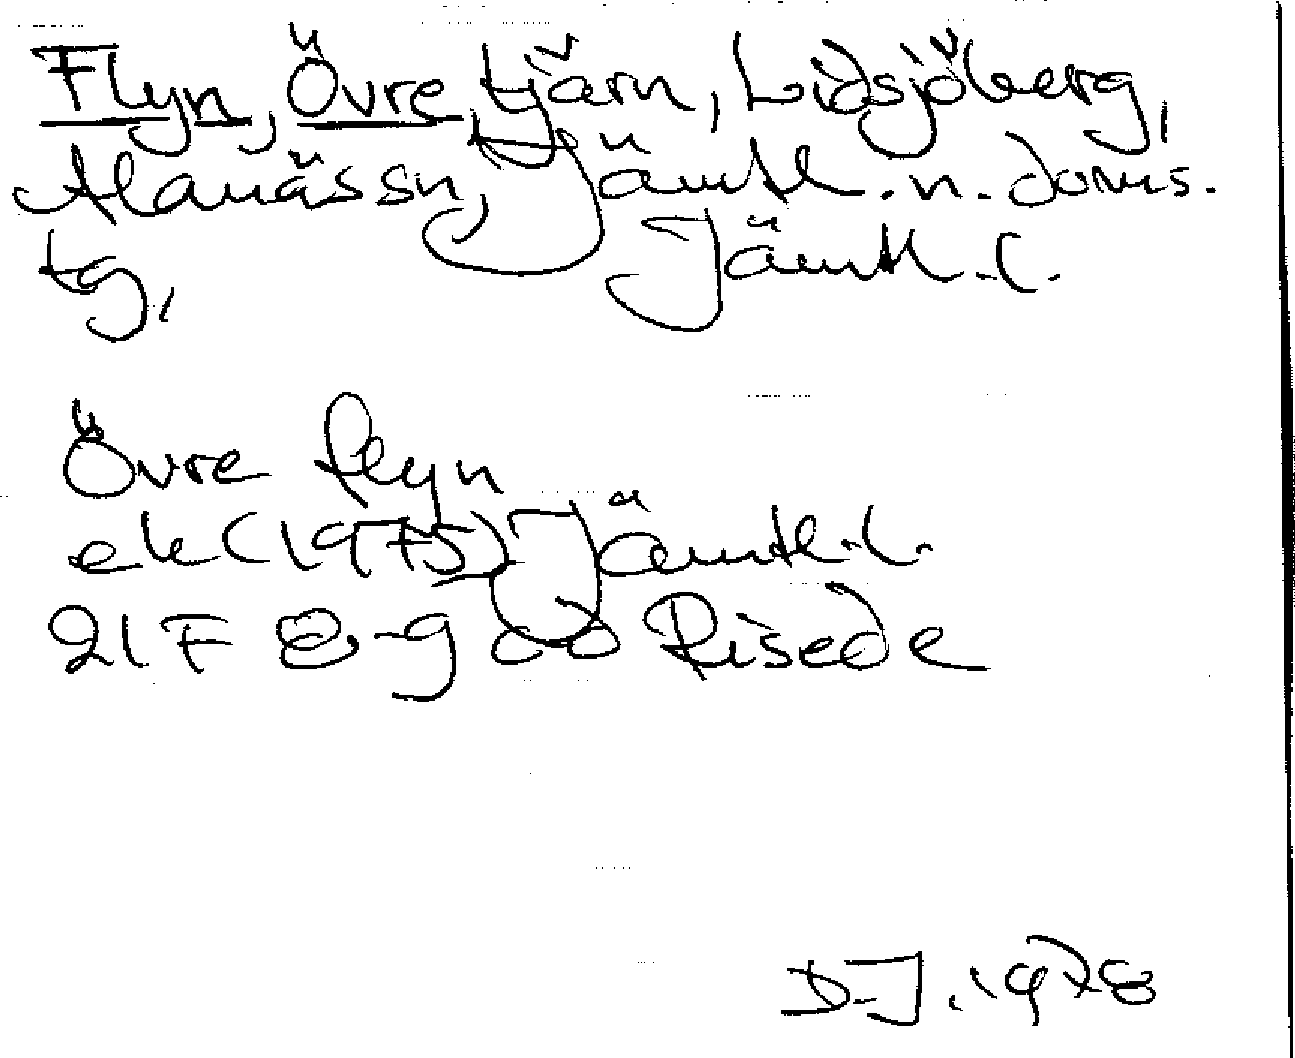 Flyn, Övre, tjärn, Lidsjöberg,
Alanässn, Jämtl. n. doms.
tg, Jämtl. l.
Övre flyn
ek (1975) Jämtl. l.
21F 8-9 Risede
D-J. 1978